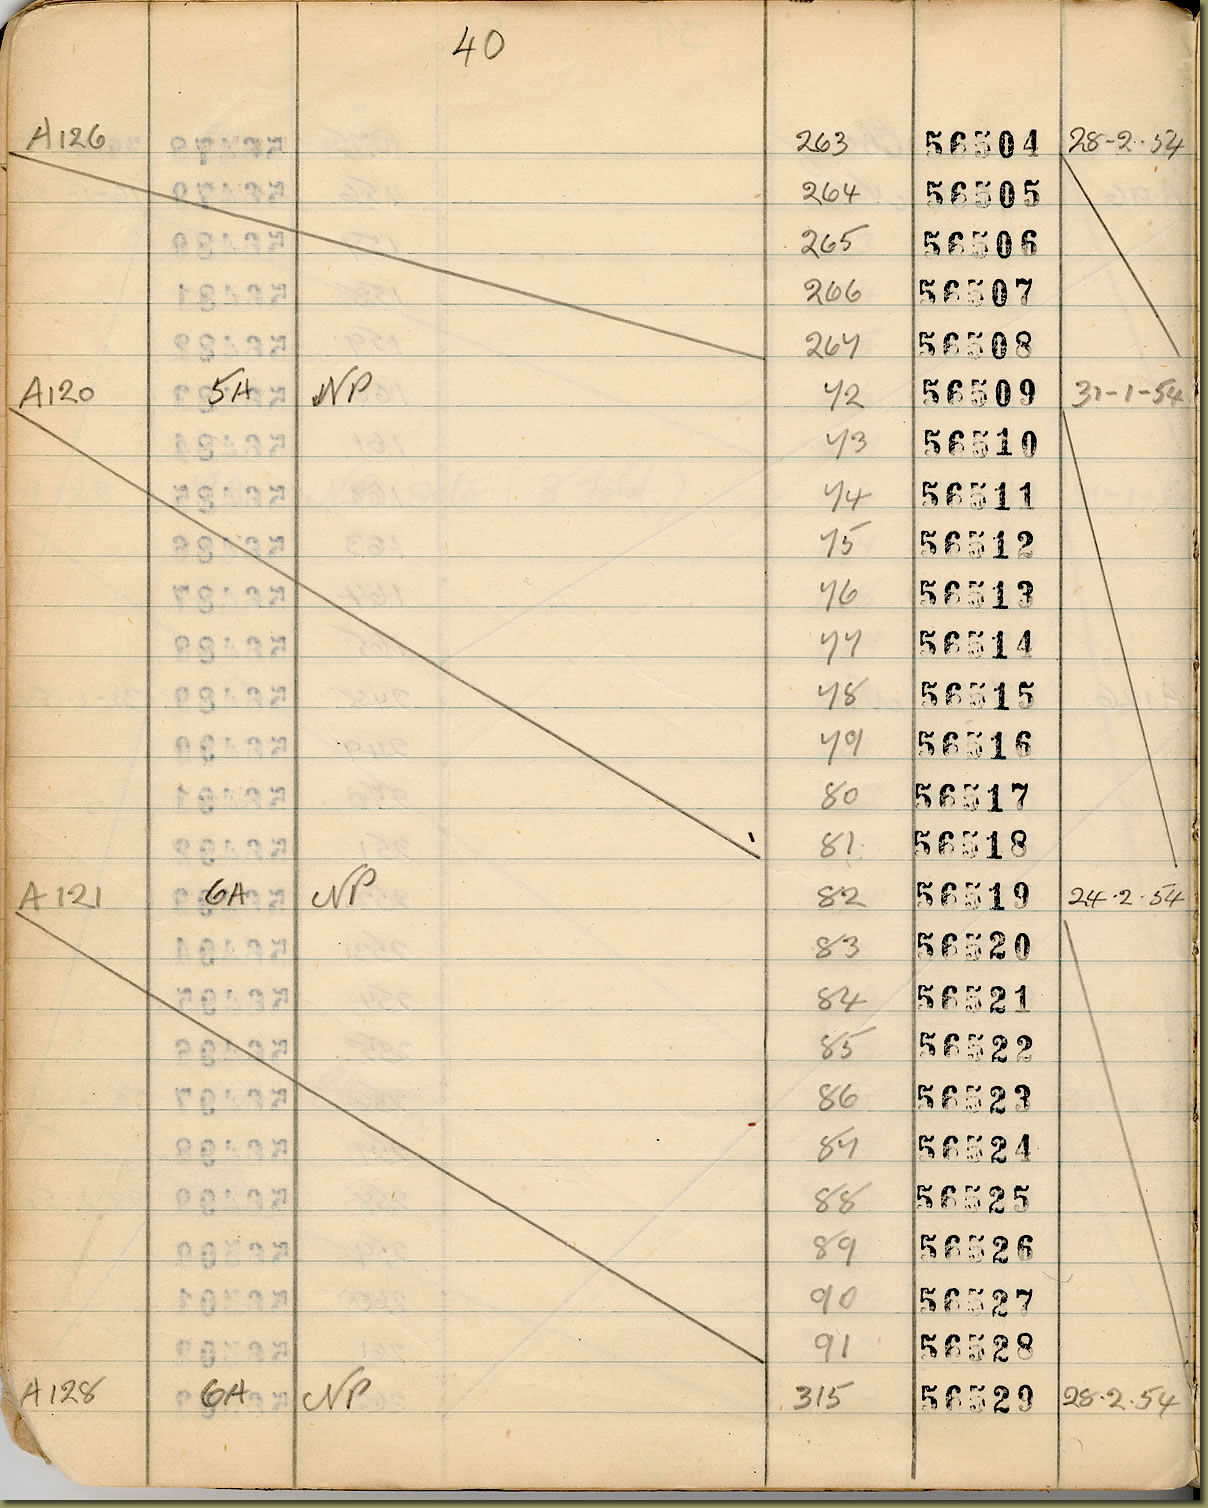 40
A126 263 56504 28-2-54
264 56505
265 56506
266 56507
267 56508
A120 5A NP 72 56509 31-1-54
73 56510
74 56511
75 56512
76 56513
77 56514
78 56515
79 56516
80 56517
81 56518
A121 6A NP 82 56519 24.2.54
83 56520
84 56521
85 56522
86 56523
87 56524
88 56525
89 56526
90 56527
91 56528
A128 6A NP 315 56529 28.2.54